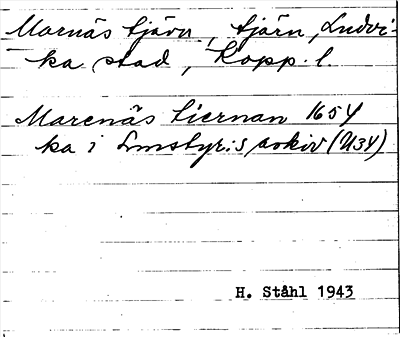 Marnäs tjärn, tjärn, Ludvi-
ka stad, Kopp. l.
Marenäs tiernan 1654
ka i Lmstyr:s arkiv (U34)
H. Ståhl 1943